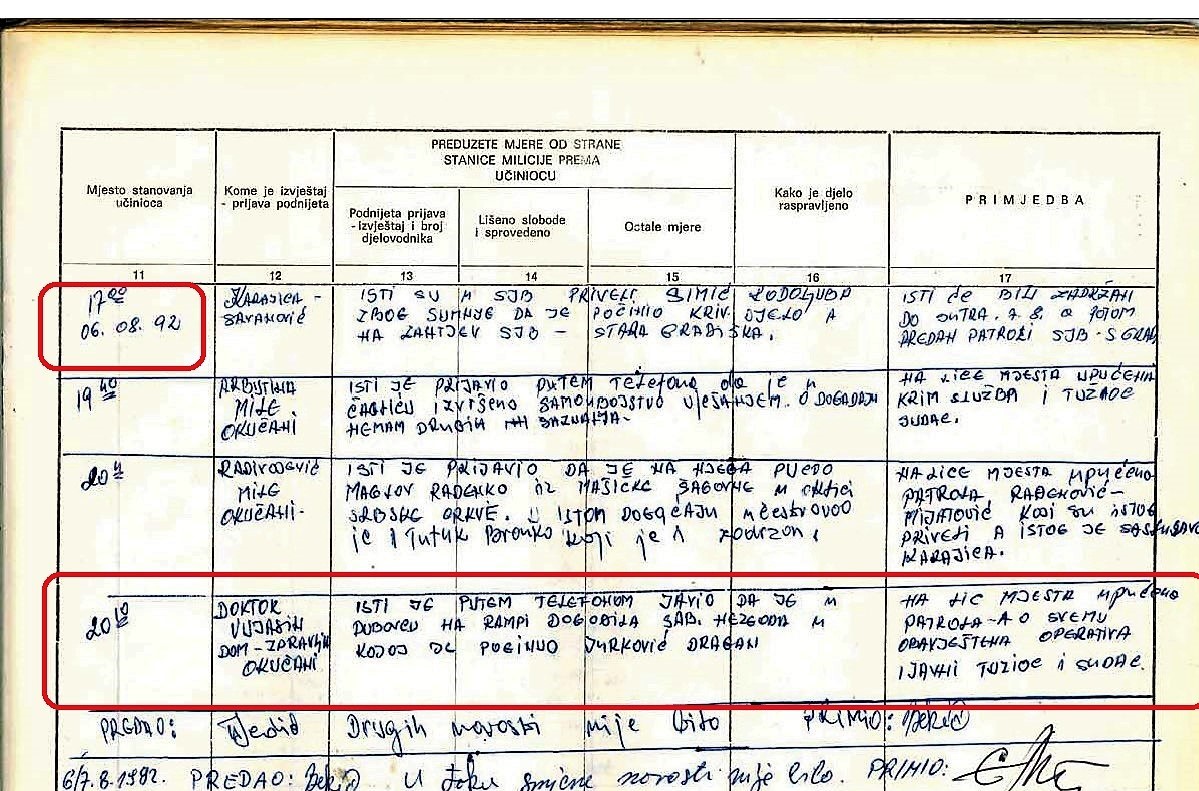 PREDUZETE MJERE OD STRANE
STANICE MILICIJE PREMA
UČINIOCU
Mjesto stanovanja
učinioca
Kome je izvještaj
- prijava podnijeta
Podnijeta prijava
-izvještaj i broj
djelovodnika
Lišeno slobode
i sprovedeno
Ostale mjere
Kako je djelo
raspravljeno
PRIMJEDBA
11 12 13 14 15 16 17
17 00
06. 08. 92
KARAJICA -
SAVANOVIĆ
ISTI SU U SJB PRIVELI SIMIĆ RODOLJUBA
ZBOG SUMNJE DA JE POČINIO KRIV. DJELO A
NA ZAHTJEV SJB - STARA GRADIŠKA.
ISTI ĆE BITI ZADRŽAN
DO SUTRA. 7. 8. a POTOM
PREDAN PATROLI SJB - S GRAD
19 40
MILE
OKUČANI
ISTI JE PRIJAVIO PUTEM TELEFONA da je u
ČAGLIĆU IZVRŠENO SAMOUBOJSTVO VJEŠANJEM. O DOGAĐAJU
NEMAM DRUGIH SAZNANJA.
NA LICE MJESTA UPUĆENA
KRIM SLUŽBA I TUŽIOC
SUDAC.
20
RADIVOJEVIĆ
MILE
OKUČANI-
ISTI JE PRIJAVIO DA JE NA NJEGA PUCAO
MAGLOV RADENKO IZ MAŠIČKE ŠAGOVINE u
SRBSKE CRKVE. U ISTOM DOGAĐAJU učestvovao
je i Tutuk Branko koji je i zadržan.
NA LICE MJESTA upućena
PATROLA RAĐENOVIĆ-
MIJATOVIĆ KOJI SU ISTOG
PRIVELI A ISTOG JE SASLUŠAVAO
KARAJICA.
20 10
DOKTOR
VUJASIN
DOM - ZDRAVLJA
OKUČANI
ISTI JE PUTEM TELEFONOM JAVIO DA JE U
DUBOVCU NA RAMPI DOGODILA SAB. NEZGODA U
KOJOJ JE POGINUO JURKOVIĆ DRAGAN
NA LIC MJESTA upućena
PATROLA-A O SVEMU
OBAVJEŠTENA OPERATIVA
I JAVNI TUŽIOC I SUDAC.
PREDAO: Drugih novosti nije bilo PRIMIO:
6/7.8.1992. PREDAO: U toku smjene novosti nije bilo. PRIMIO: